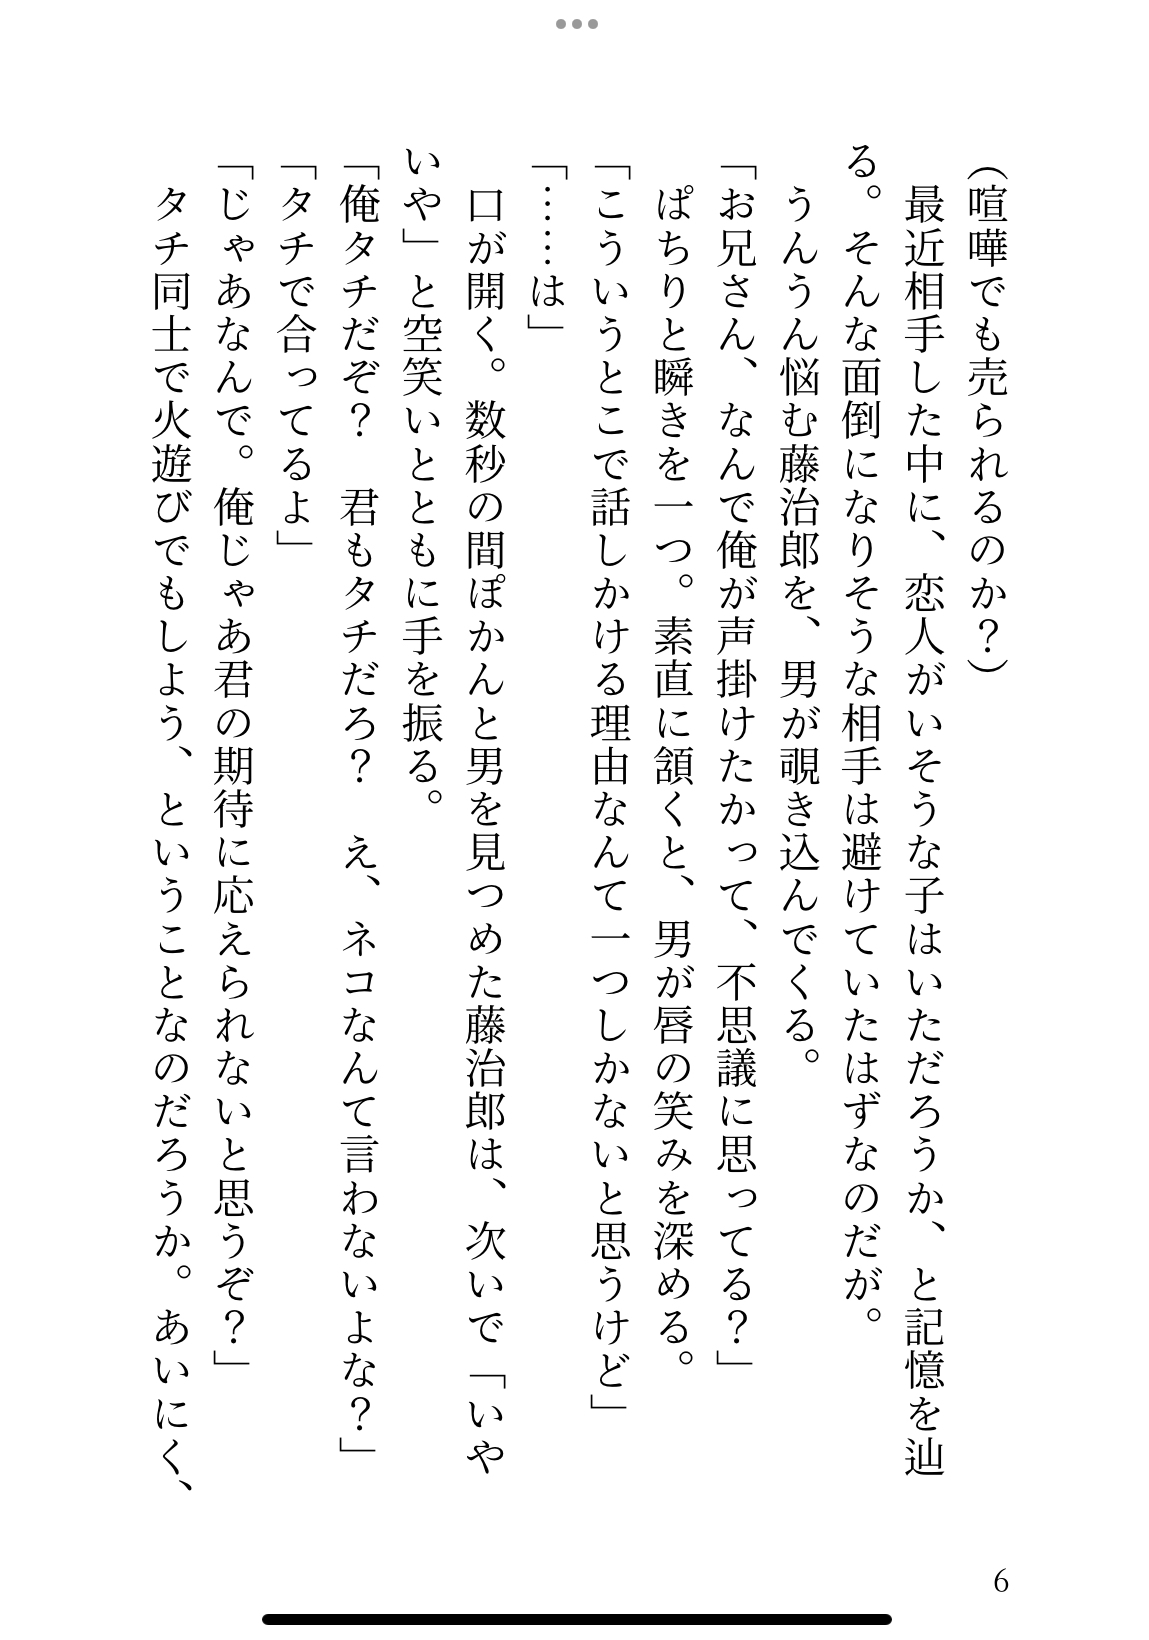 （喧嘩でも売られるのか？）
　最近相手した中に、恋人がいそうな子はいただろうか、と記憶を辿
る。そんな面倒になりそうな相手は避けていたはずなのだが。
　うんうん悩む藤治郎を、男が覗き込んでくる。
「お兄さん、なんで俺が声掛けたかって、不思議に思ってる？」
　ぱちりと瞬きを一つ。素直に頷くと、男が唇の笑みを深める。
「こういうとこで話しかける理由なんて一つしかないと思うけど」
「……は」
　口が開く。数秒の間ぽかんと男を見つめた藤治郎は、次いで「いや
いや」と空笑いとともに手を振る。
「俺タチだぞ？　君もタチだろ？　え、ネコなんて言わないよな？」
「タチで合ってるよ」
「じゃあなんで。俺じゃあ君の期待に応えられないと思うぞ？」
　タチ同士で火遊びでもしよう、ということなのだろうか。あいにく、
6